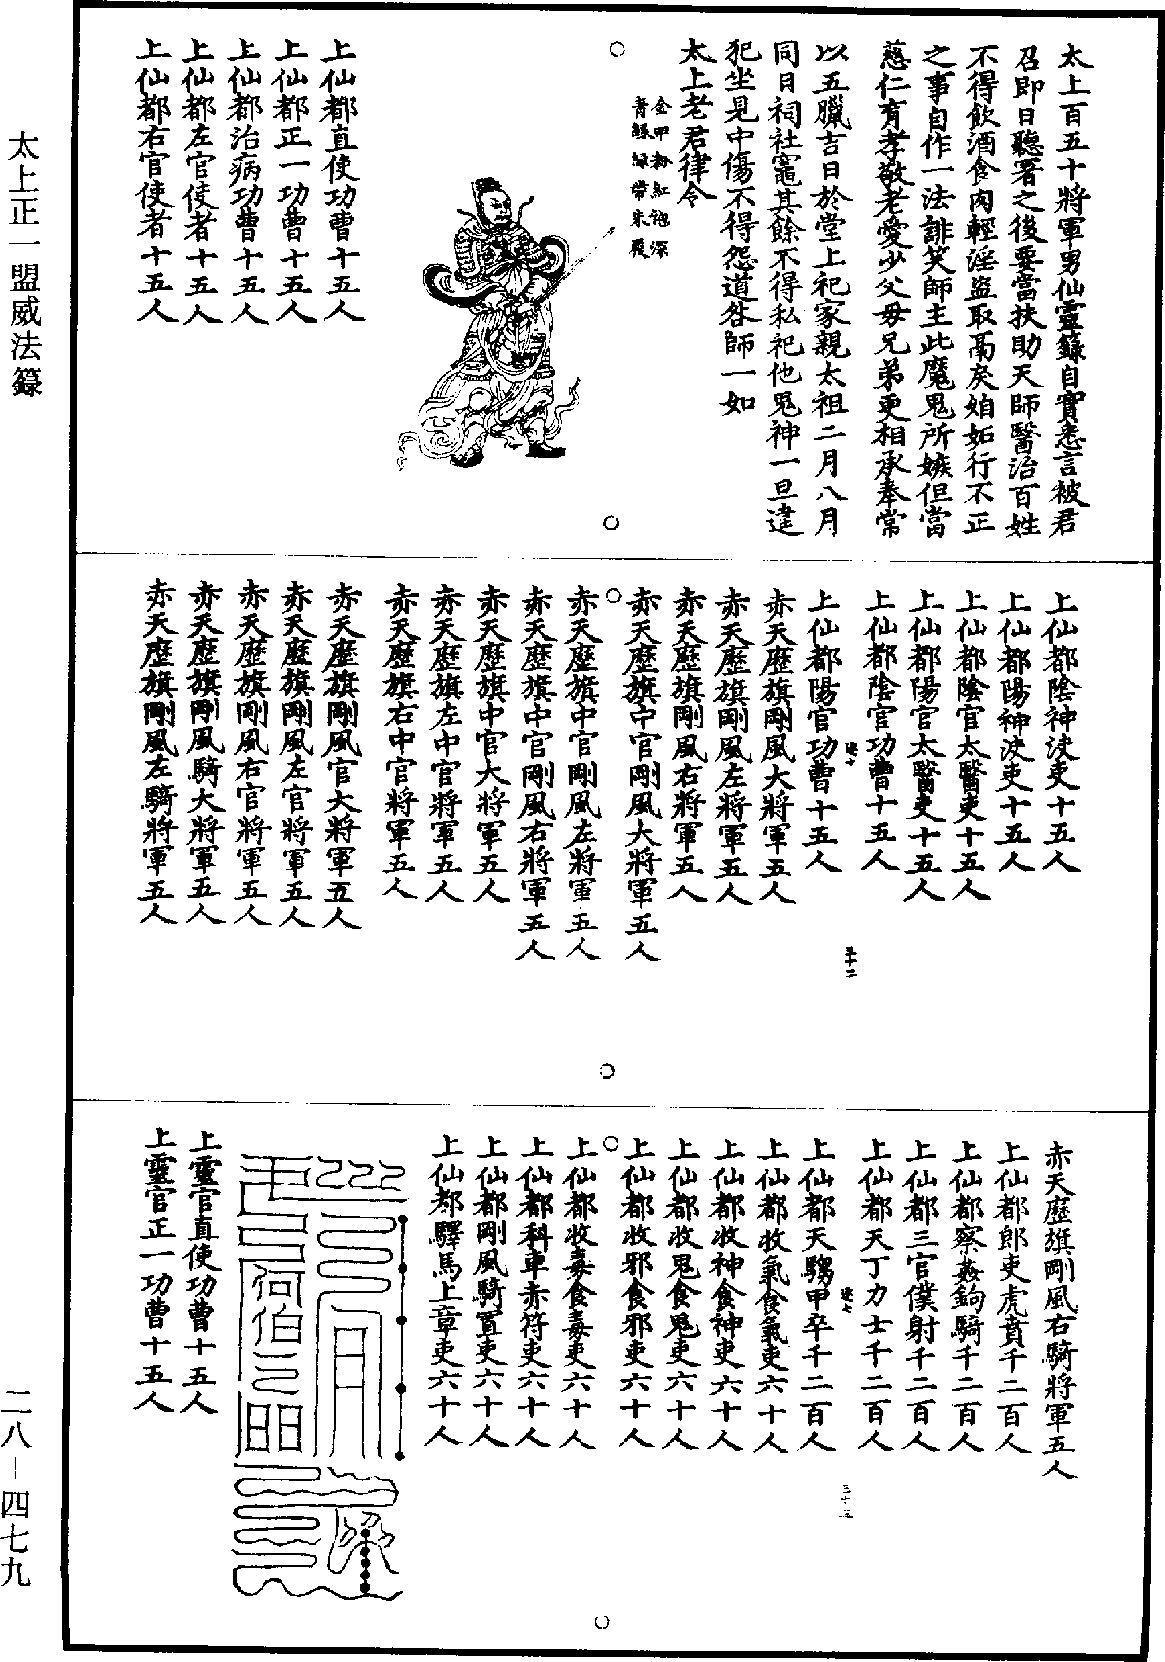 太上百五十將軍男仙靈籙自實悉言被君
召即日聽署之後要當扶助天師醫治百姓
不得飲酒食肉輕淫盜取
之事自作一法誹笑師主此魔鬼所嫉但當
慈仁育孝敬老愛少父母兄弟更相承奉常
以五臘吉日於堂上祀家親太祖二月八月
同日祠社竈其餘不得私祀他鬼神一旦違
犯坐見中傷不得怨道咎師一如
太上老君律令
金甲粉紅袍深
青緣綠帶朱履
上仙都直使功曹十五人
上仙都正一功曹十五人
上仙都治病功曹十五人
上仙都左官使者十五人
上仙都右官使者十五人
上仙都陰神決吏十五人
上仙都陽神決吏十五人
上仙都陰官太醫吏十五人
上仙都陽官太醫吏十五人
上仙都陰官功曹十五人
上仙都陽官功曹十五人
赤天歷旗剛風大將軍五人
赤天歷旗剛風左將軍五人
赤天歷旗剛風右將軍五人
赤天歷旗中官剛風大將軍五人
赤天歷旗中官剛風左將軍五人
赤天歷旗中官剛風右將軍五人
赤天歷旗中官大將軍五人
赤天歷旗左中官將軍五人
赤天歷旗右中官將軍五人
赤天歷旗剛風官大將軍五人
赤天歷旗剛風左官將軍五人
赤天歷旗剛風右官將軍五人
赤天歷旗剛風騎大將軍五人
赤天歷旗剛風左騎將軍五人
赤天歷旗剛風右騎將軍五人
上仙都郎吏虎賁千二百人
上仙都察姦鉤騎千二百人
上仙都三官僕射千二百人
上仙都天丁力士千二百人
上仙都天騶甲卒千二百人
上仙都收氣食氣吏六十人
上仙都收神食神吏六十人
上仙都收鬼食鬼吏六十人
上仙都收邪食邪吏六十人
上仙都收毒食毒吏六十人
上仙都科車赤符吏六十人
上仙都剛風騎置吏六十人
上仙都驛馬上章吏六十人
上靈官直使功曹十五人
上靈官正一功曹十五人
太上正一盟威法籙
二八－四七九